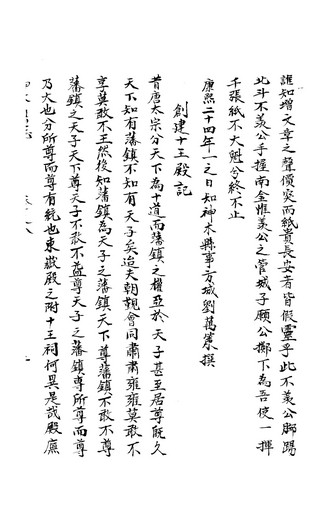 誰知增文章之聲價突而紙貴長安者皆假靈乎此不羨公脚踢
北斗不羨公手握南金惟羨公之管城子願公擲下為吾使一揮
千張紙不大魁兮終不止
康熙二十四年一之日知神木縣事方城劉萬策撰
創建十王殿記
昔唐太宗分天下為十道而藩鎮之權亞於天子甚至居尊既久
天下知有藩鎮不知有天子矣迨夫朝覲會同肅肅雍雍莫敢不
享莫敢不王然後知藩鎮為天子之藩鎮天下尊藩鎮不敢不尊
藩鎮之天子天下尊天子不敢不益尊天子之藩鎮專所尊而尊
乃大也分所尊而尊有統也東嶽殿之附十王祠何異是哉殿廡